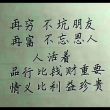 再穷不坑朋友
再富不忘恩人
人活着
品行比钱财重要
情义比利益珍贵